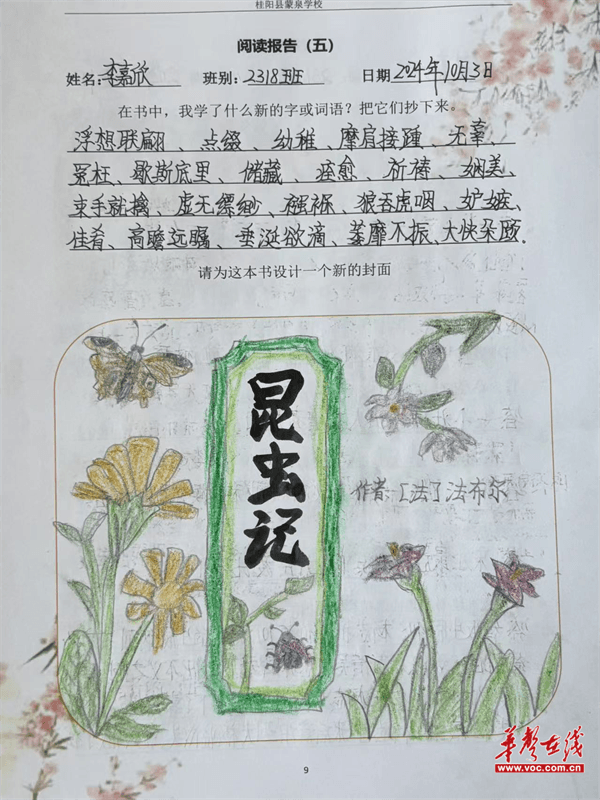 桂阳县蒙泉学校
阅读报告（五）
姓名：李嘉欣 班别：2318班 日期 2024年10月3日
在书中，我学了什么新的字或词语？把它们抄下来。
浮想联翩、点缀、幼稚、摩肩接踵、无辜、
冤枉、歇斯底里、储藏、痊愈、祈祷、娴美、
束手就擒、虚无缥缈、襁褓、狼吞虎咽、妒嫉、
佳肴、高瞻远瞩、垂涎欲滴、萎靡不振、大快朵颐.
请为这本书设计一个新的封面
昆虫记
作者：[法]法布尔
9
华声在线
www.voc.com.cn